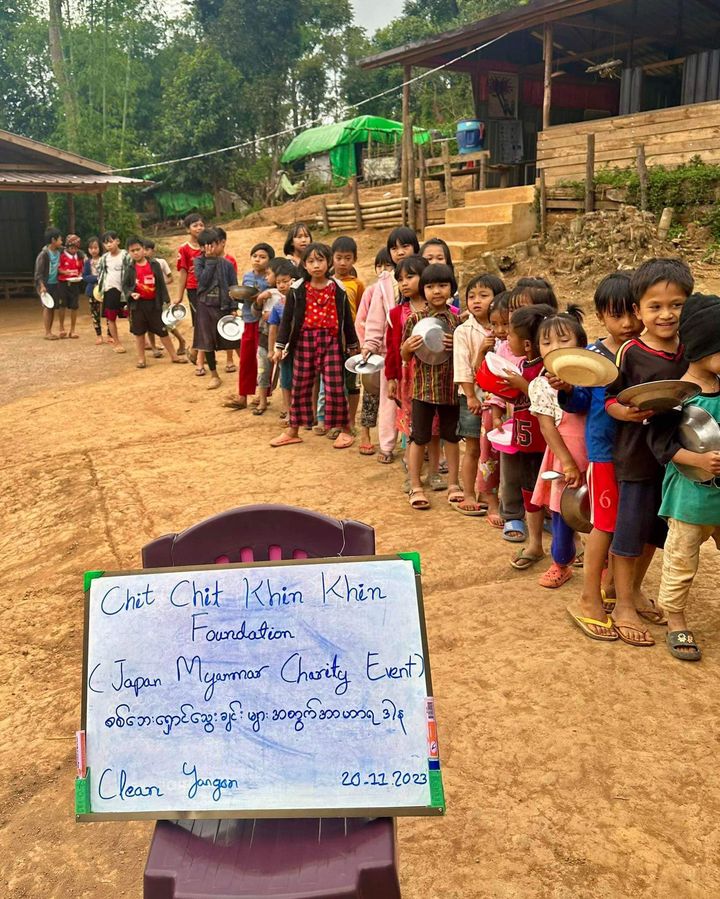 Chit Chit Khin Khin
Foundation
( Japan Myanmar Charity Event)
စစ်ဘေးရှောင်သွေးချင်းများအတွက်အာဟာရဒါန
Clean Yangon 20-11.2023
5
6